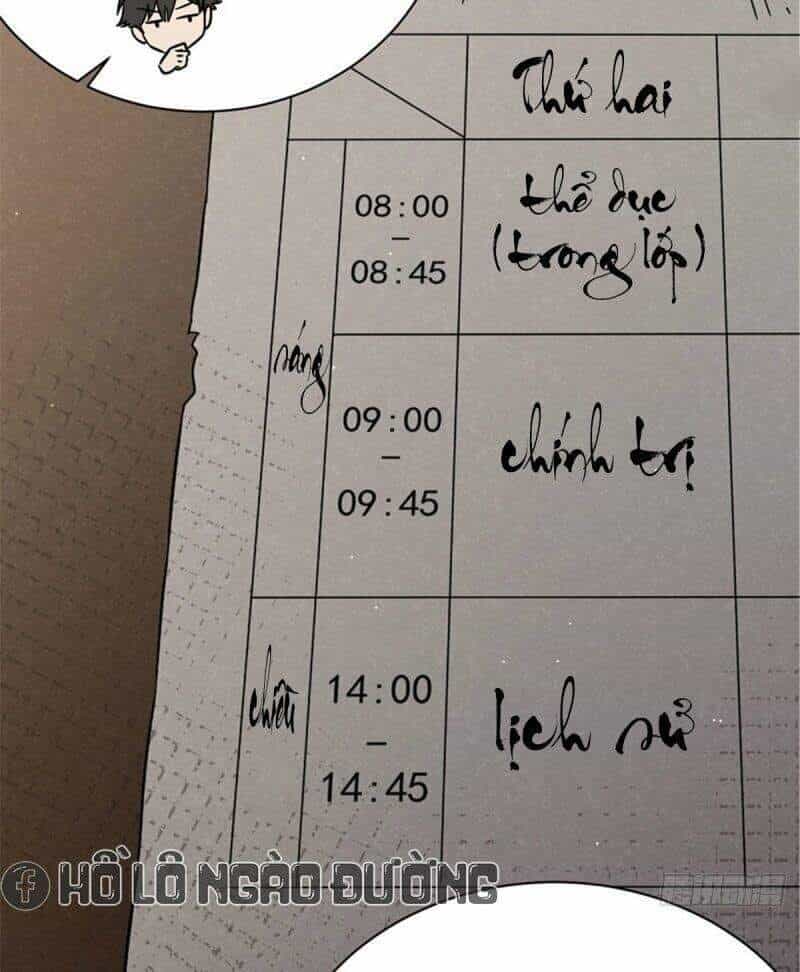 Thứ hai
sáng
08:00
–
08:45
thể dục
(trong lớp)
09:00
–
09:45
chính trị
chiều
14:00
–
14:45
lịch sử
HỒ LÔ NGÀO ĐƯỜNG